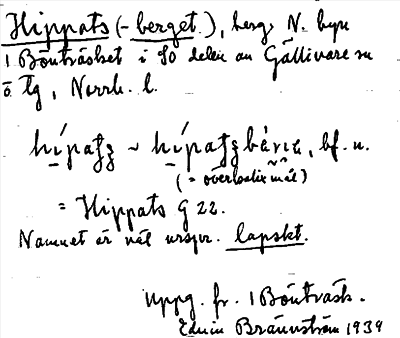 Hippats (-berget), berg N. byn
i Bönträsket i SO delen av Gällivare sn
o. tg, Norrb. l.
hípats ~ hípatsbärie, bf. n.
(= överkalix mål)
= Hippats G 22.
Namnet är väl urspr. lapskt.
Uppg. fr. i Bönträsk.
Edvin Brännström 1939